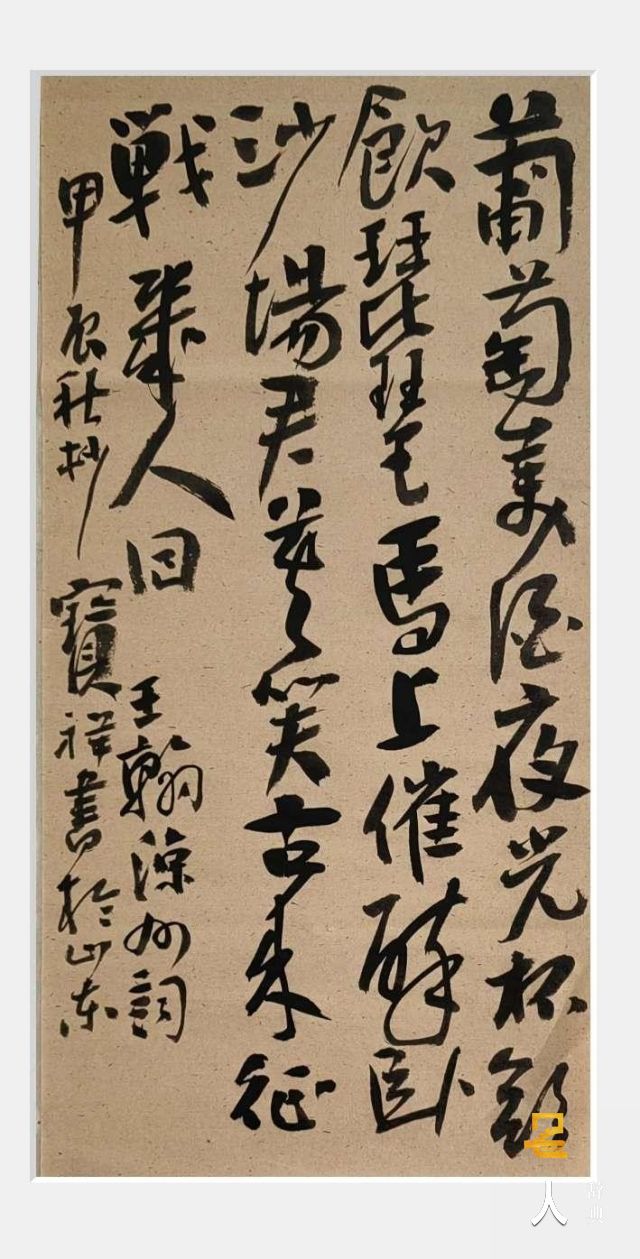 葡萄美酒夜光杯欲
飲琵琶馬上催醉臥
沙場君莫笑古来征
戦幾人回
王翰涼州詞
甲辰秋杪
寶祥書於山東
人